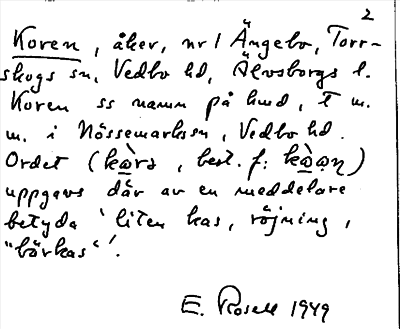 2
Koren, åker, nr 1 Ängebo, Torr-
skogs sn, Vedbo hd, Älvsborgs l.
Koren ss namn på hmd, t m.
m. i Nössemarks sn, Vedbo hd.
Ordet (, best. f:)
uppgavs där av en meddelare
betyda 'liten kas, röjning,
"börkas"'.
E. Rosell 1949